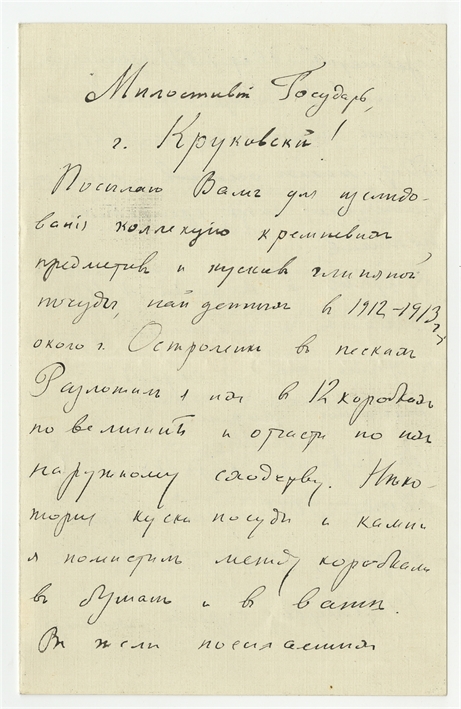 Милостивый Государь,
г. Круковскій!
Посылаю Вамъ для изслѣдо-
ванія коллекцію кремневыхъ
предметовъ и кусковъ глиняной
посуды, найденныхъ в 1912-1913 гг
около г. Остроленки въ пескахъ
Разложилъ я их в 12 коробкахъ
по величинѣ и отчасти по их
наружному сходству. Нѣко-
торыя куски посуды и камни
я помѣстилъ между коробками
въ бумагѣ и въ ватѣ.
посылаемыхъ